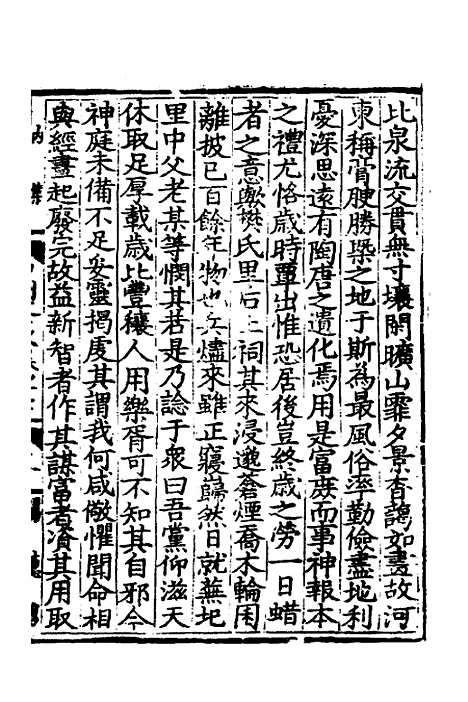 比泉流交貫無寸壤閑曠山霏夕景杳靄如畫故河
東稱膏腴勝槩之地于斯為最風俗率勤儉盡地利
憂深思遠有陶唐之遺化焉用是富庶而事神報本
之禮尤恪歲時覃出惟恐居後豈終歲之勞一日蜡
者之意歟樊氏里后土祠其來浸邈蒼煙喬木輪囷
離披已百餘年物也兵燼來雖正寢巋然日就蕪圮
里中父老某等憫其若是乃諗于衆曰吾黨仰滋天
休取足厚載歲比豐穰人用樂胥可不知其自邪今
神庭未備不足妥靈揭虔其謂我何咸儆懼聞命相
與經畫起廢完故益新智者作其謀富者濟其用取